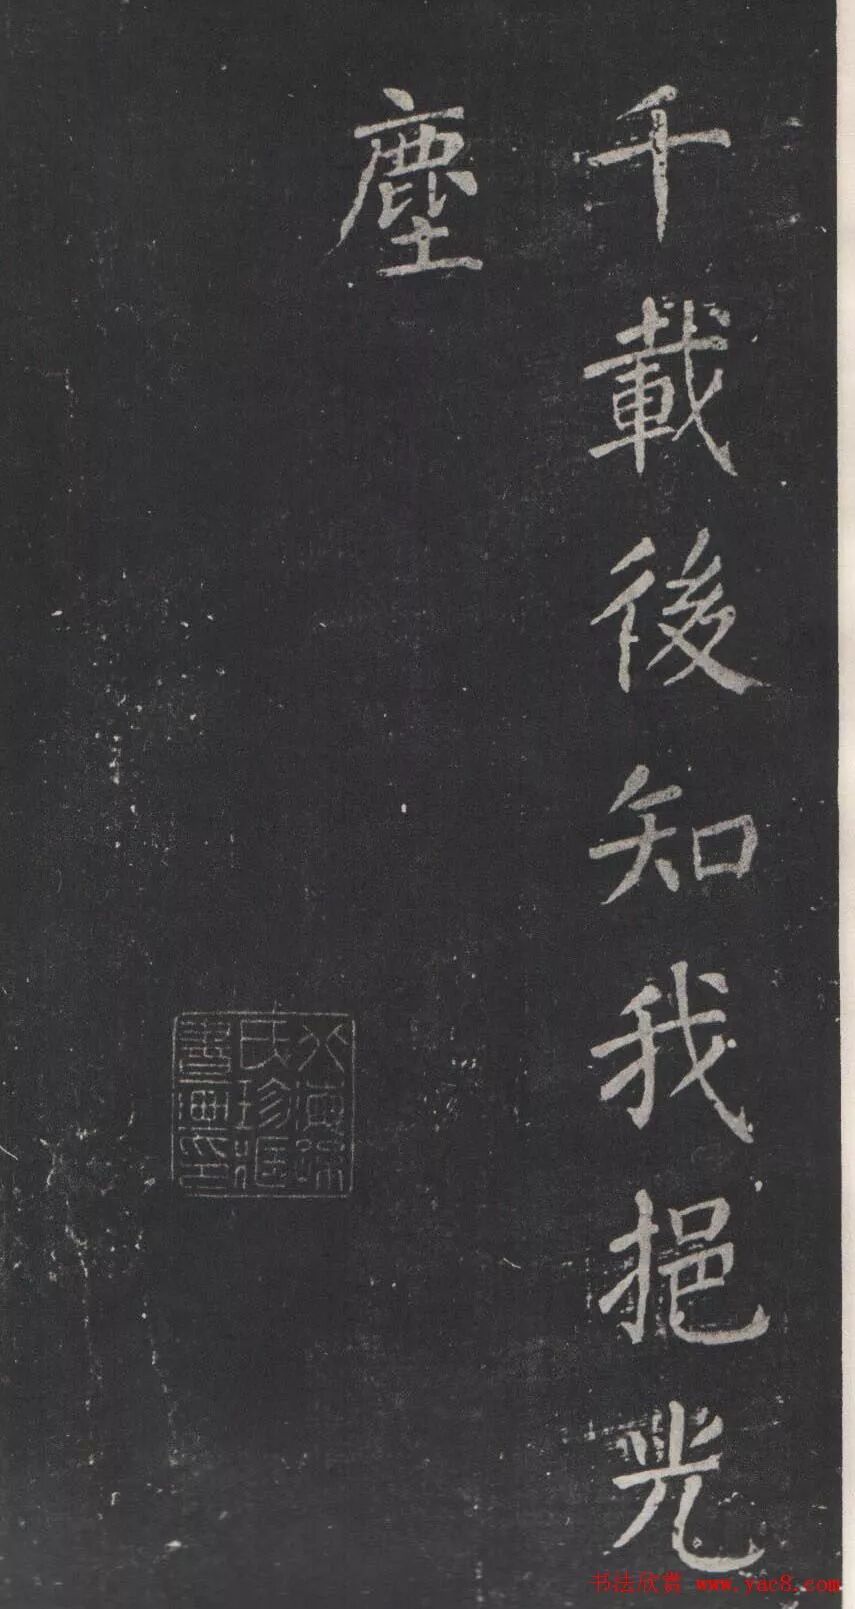 千載後知我挹光
塵
氏珍藏
書畫印
书法欣赏 www.yac8.com